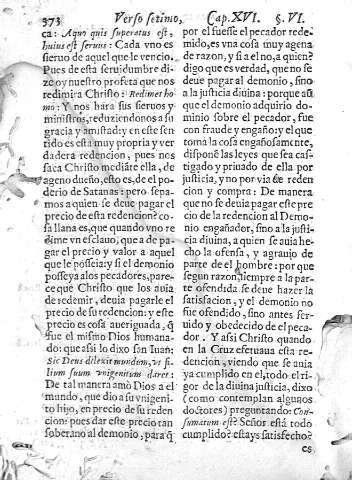 373 Verso setimo, Cap. XVI. §. VI.
ca: Aquo quis superatus est,
huius est seruus: Cada vno es
sieruo de aquel que le vencio.
Pues de esta seruidumbre di-
ze oy nuestro profeta que nos
redimira Christo: Redimet ho-
mo: Y nos hara sus sieruos y
ministros, reduziendonos a su
gracia y amistad: y en este sen-
tido es esta muy propria y ver
dadera redencion, pues nos
saca Christo mediate ella, de
ageno dueño, esto es, de el po-
derio de Satanas: pero sepa-
mos a quien se deue pagar el
precio de esta redencion? co-
sa llana es, que quando vno re
dime vn esclauo, que a de pa-
gar el precio y valor a aquel
que le posseia: y si el demonio
posseya a los pecadores, pare-
ce que Christo que los auia
de redemir, deuia pagarle el
precio de su redencion: y este
precio es cosa aueriguada, q̃
fue el mismo Dios humana-
do: que assi lo dixo san Iuan:
Sic Deus dilexit mundum, vt fi-
lium suum vnigenitum daret:
De tal manera amò Dios a el
mundo, que dio a su vnigeni-
to hijo, en precio de su reden
cion: pues dar este precio tan
soberano al demonio, para q̃
por el fuesse el pecador rede-
mido, es vna cosa muy agena
de razon, y si a el no, a quien?
digo que es verdad, que no se
deue pagar al demonio, sino
a la justicia diuina: porque assi
que el demonio adquirio do-
minio sobre el pecador, fue
con fraude y engaño: y el que
toma la cosa engañosamente,
disponẽ las leyes que sea cas-
tigado y priuado de ella por
justicia, y no por via de reden
cion y compra: De manera
que no se deuia pagar este pre
cio de la redencion al Demo-
nio engañador, sino a la justi-
cia diuina, a quien se auia he-
cho la ofensa, y agrauio de
parte de el hombre: por que
segun razon, siempre a la par-
te ofendida se deue hazer la
satisfacion, y el demonio no
fue ofendido, sino antes ser-
uido y obedecido de el peca-
dor. Y assi Christo quando
en la Cruz efetuaua esta re-
dencion, viendo que se auia
ya cumplido en el, todo el ri-
gor de la diuina justicia, dixo
(como contemplan algunos
doctores) preguntando: Con-
sumatum est? Señor está todo
cumplido? estays satisfecho?
es